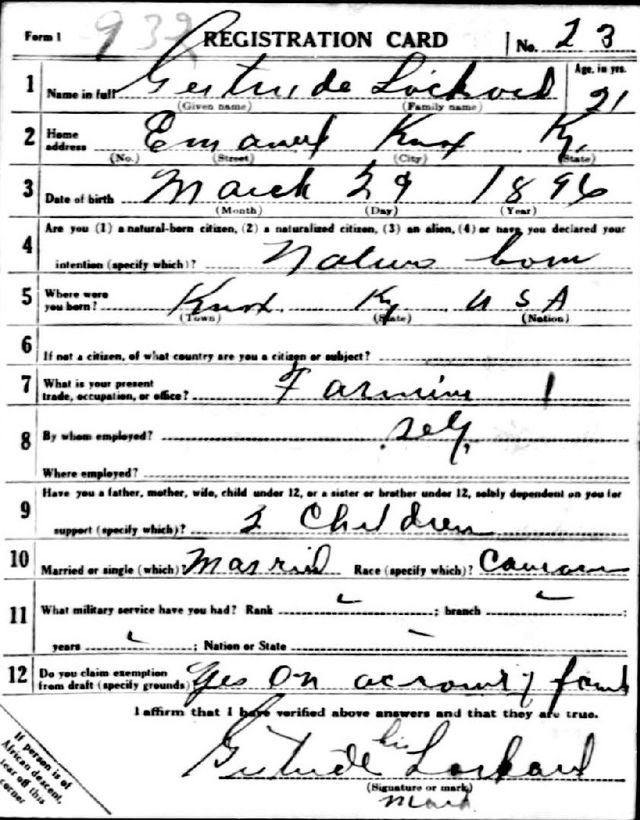 Form 1 932 REGISTRATION CARD No. 23
1 Name in full Gertrude Lockard Age, in yrs. 21
(Given name) (Family name)
2 Home address Emanuel Knox Ky.
(No.) (Street) (City) (State)
3 Date of birth March 29 1896
(Month) (Day) (Year)
Are you (1) a natural-born citizen, (2) a naturalized citizen, (3) an alien, (4) or have you declared your
4 intention (specify which)? Natural born
5 Where were you born? Knox Ky USA
(Town) (State) (Nation)
6 If not a citizen, of what country are you a citizen or subject?
7 What is your present trade, occupation, or office? Farming 1
8 By whom employed? self
Where employed?
Have you a father, mother, wife, child under 12, or a sister or brother under 12, solely dependent on you for
9 support (specify which)? Children
10 Married or single (which)? Married Race (specify which)?
11 What military service have you had? Rank ; branch ;
years ; Nation or State
12 Do you claim exemption from draft (specify grounds) Yes On account of
I affirm that I have verified above answers and that they are true.
his
Gertrude Lockard
(Signature or mark)
mark
If person is of
African descent,
tear off this
corner